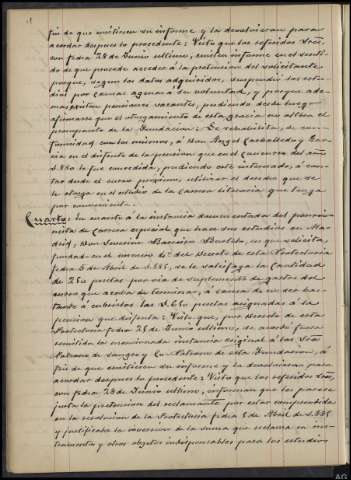 fin de que emitiesen su informe y la devolvieran para
acordar despues lo procedente: Visto que los referidos Sres.
con fecha 28 de Junio ultimo, emiten informe en el senti-
do de que procede acceder á la pretension del solicitante
porque, segun los datos adquiridos, suspendió los estu-
dios por causa agena á su voluntad, y porque ade-
mas existen pensiones vacantes, pudiendo desde luego
afirmarse que el otorgamiento de esta gracia no altera el
presupuesto de la Fundacion: Se rehabilita, de con-
formidad con los mismos, á Don Angel Carballedo y Gar-
cia en el disfrute de la pension que en el concurso del año
1.880 le fue concedida, pudiendo este interesado, á con-
tar desde el curso proximo, utilizar el derecho que se
le otorga en el estudio de la Carrera literaria que tenga
por conveniente.
Cuarto: En cuanto á la instancia documentada del pensio-
nista de Carrera especial que hace sus estudios en Ma-
drid, Don Severino en que solicita,
fundado en el numero 4º del Decreto de esta Protectoria
fecha 6 de Abril de 1.885, se le satisfaga la Cantidad
de 250 pesetas por via de suplemento de gastos del
curso que acaba de terminar, á causa de no ser bas-
tante á cubrirlos las 1.650 pesetas asignadas á la
pension que disfruta: Visto que, por Decreto de esta
Protectoria fecha 25 de Junio ultimo, se acordó fuese
remitida la mencionada instancia original á los Sres.
Patronos de sangre y Co-Patrono de esta Fundacion, á
fin de que emitiesen su informe y la devolvieran para
acordar despues lo procedente: Visto que los referidos Sres.
con fecha 28 de Junio ultimo, informan que les parece
justa la pretension del reclamante por estar comprendida
en la resolucion de la Protectoria fecha 6 de Abril de 1.885
y justificada la inversion de la suma que reclama en ins-
trumentos y otros objetos indispensables para los estudios